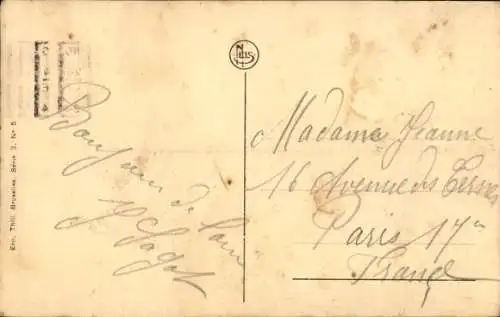 Ern. Thill, Bruxelles. Série 3, No 5
NELS
Bonjour de
Madame Jeanne
16 Avenue des Ternes
Paris 17e
France